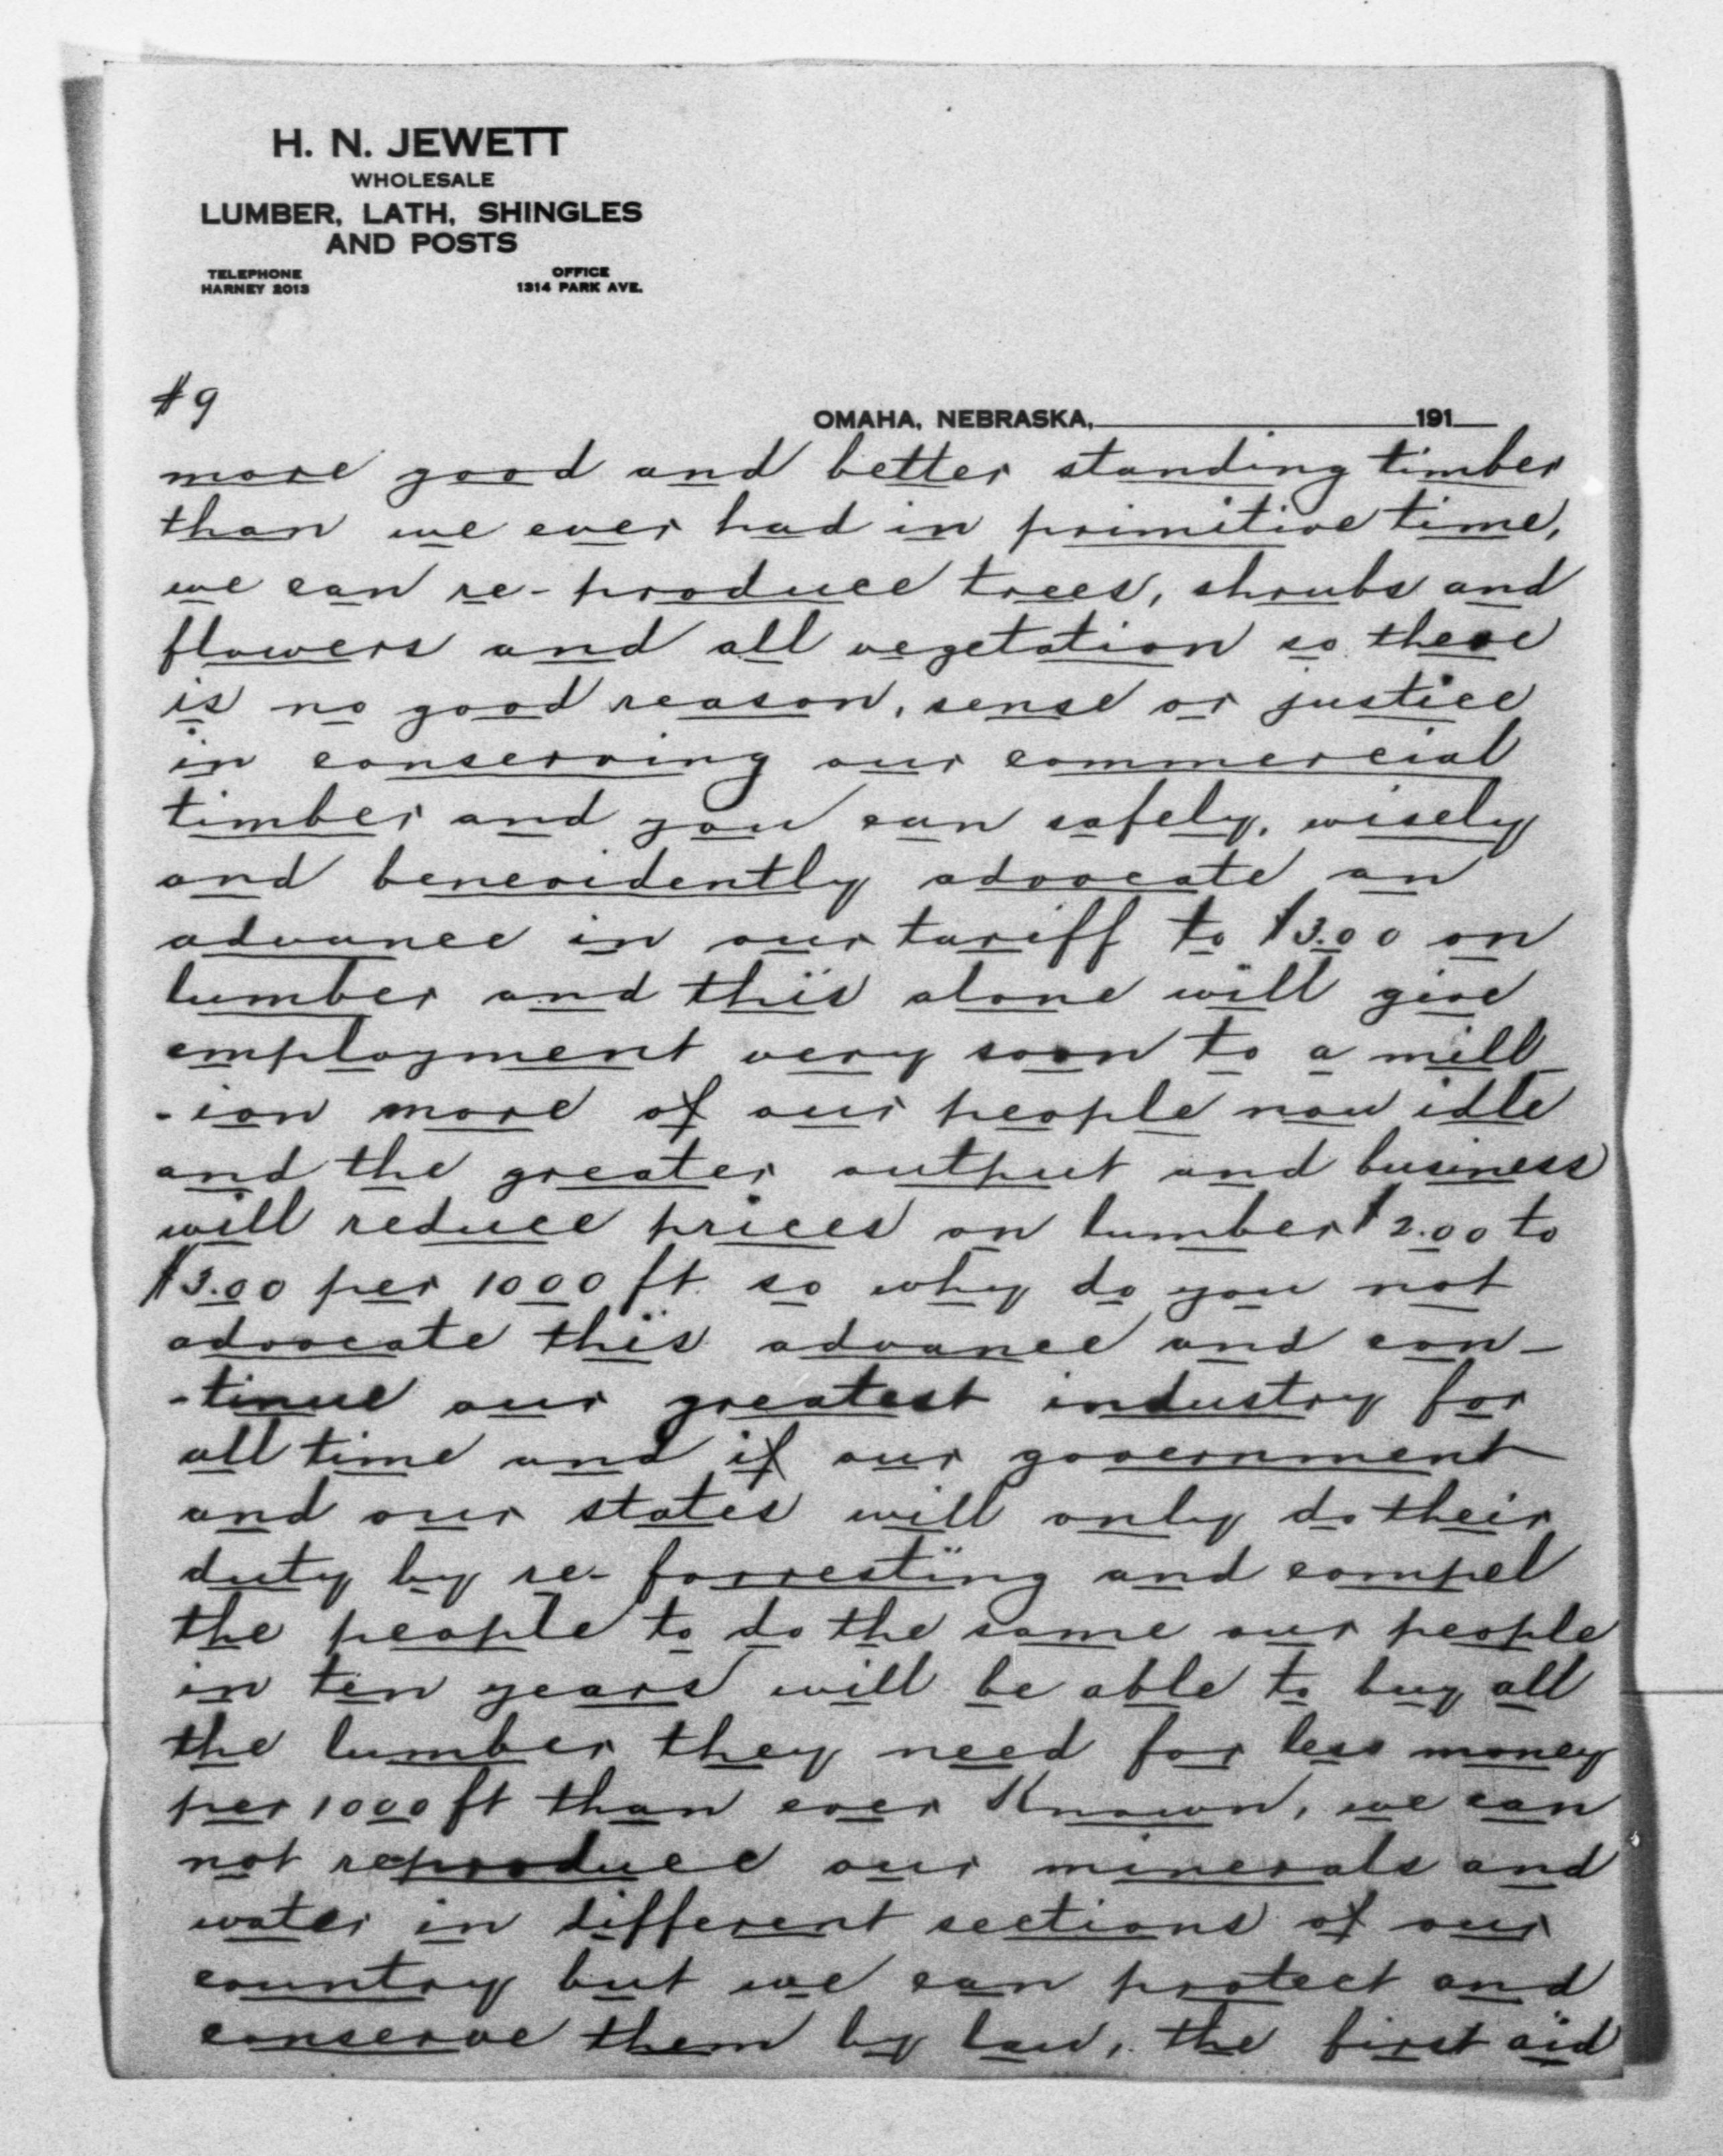 H. N. JEWETT
WHOLESALE
LUMBER, LATH, SHINGLES
AND POSTS
TELEPHONE
HARNEY 2013
OFFICE
1314 PARK AVE.
#9
OMAHA, NEBRASKA, 191
more good and better standing timber
than we ever had in primitive time,
we can re-produce trees, shrubs and
flowers and all vegetation so there
is no good reason, sense or justice
in conserving our commercial
timber and you can safely, wisely
and benevidently advocate an
advance in our tariff to $3.00 on
lumber and this alone will give
employment very soon to a mill
-ion more of our people now idle
and the greater output and business
will reduce prices on lumber $2.00 to
$3.00 per 1000 ft. so why do you not
advocate this advance and con-
-tinue our greatest industry for
all time and if our government
and our states will only do their
duty by re-forresting and compel
the people to do the same our people
in ten years will be able to buy all
the lumber they need for less money
per 1000 ft than ever Known, we can
not reproduce our minerals and
water in different sections of our
country but we can protect and
conserve them by law, the first aid